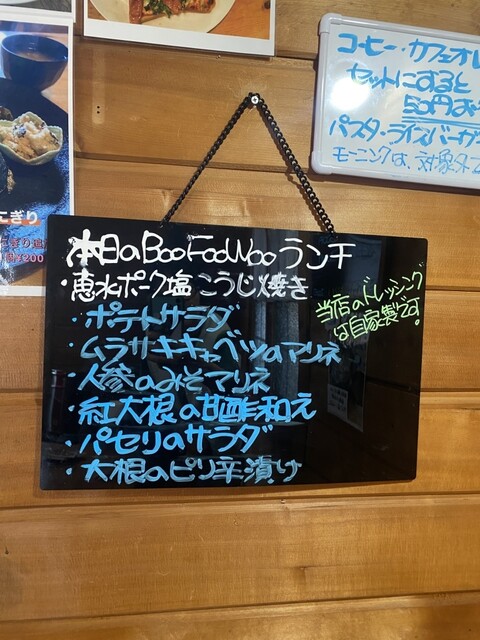 本日のBooFooWooランチ
・恵水ポーク塩こうじ焼き
・ポテトサラダ
・ムラサキキャベツのマリネ
・人参のみそマリネ
・紅大根の甘酢和え
・パセリのサラダ
・大根のピリ辛漬け
当店のドレッシング
は自家製です!
コーヒー・カフェオレ
セットにすると
50円お
パスタ・ライスバーガー
モーニングは、対象外で
こぎり
¥200